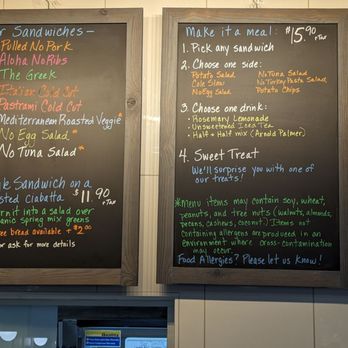 r Sandwiches-
Pulled No Pork
Aloha No Ribs
The Greek
Italian Cold Cut
Pastrami Cold Cut
Mediterranean Roasted Veggie*
No Egg Salad*
No Tuna Salad*
Sandwich on a
sted Ciabatta $11.90
+Tax
rn it into a salad over
nic spring mix greens
ree bread available +$2.00
or ask for more details
Make it a meal: $15.90
+Tax
1. Pick any sandwich
2. Choose one side:
Potato Salad No Tuna Salad
Cole Slaw No Turkey Pasta Salad
No Egg Salad Potato Chips
3. Choose one drink:
• Rosemary Lemonade
• Unsweetened Iced Tea
• Half + half mix (Arnold Palmer)
4. Sweet Treat
We'll surprise you with one of
our treats!
*Menu items may contain soy, wheat,
peanuts, and tree nuts (walnuts, almonds,
pecans, cashews, coconut.) Items not
containing allergens are produced in an
environment where cross-contamination
may occur.
Food Allergies? Please let us know!